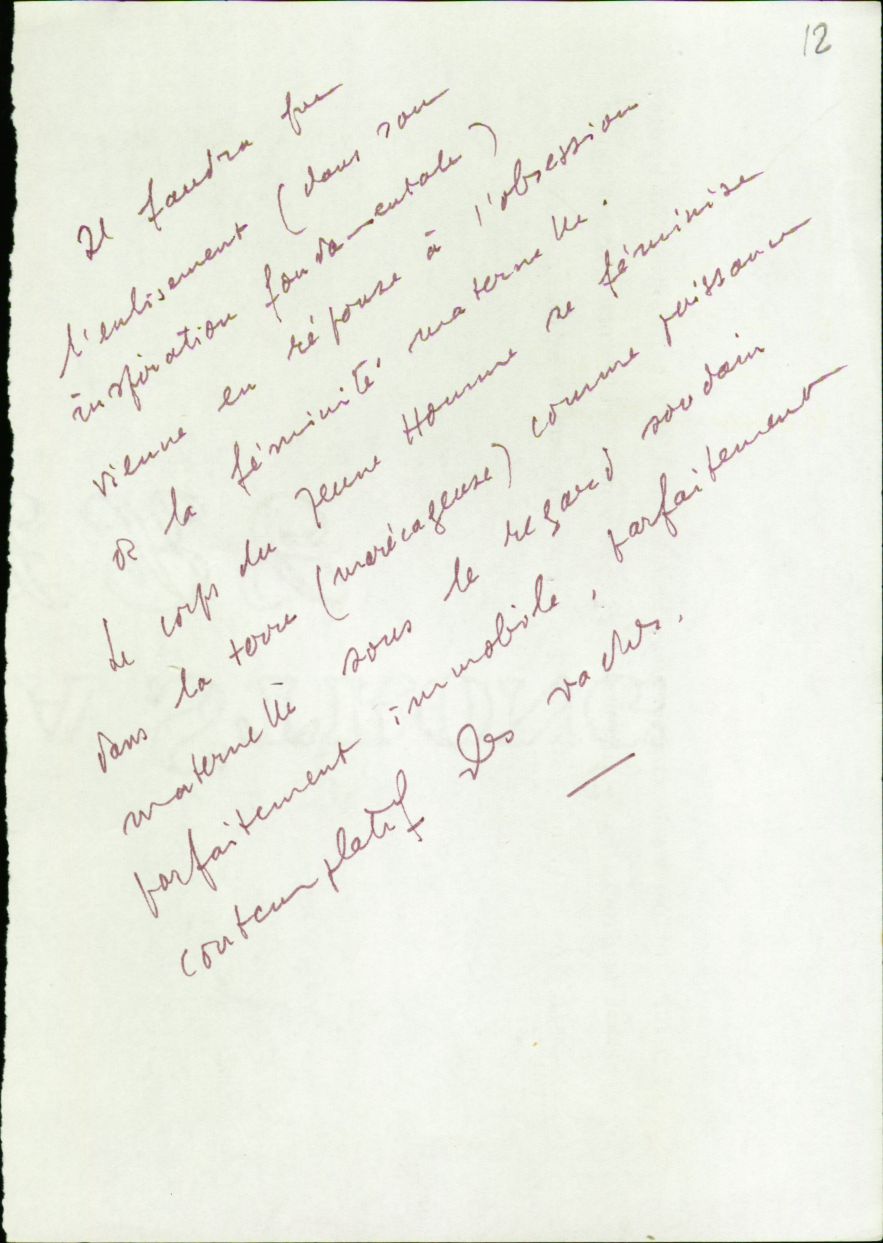 12
Il faudra que
l'enlisement (dans son
inspiration fondamentale)
vienne en réponse à l'obsession
de la féminité maternelle.
Le corps du Jeune Homme se féminise
dans la terre (marécageuse) comme puissance
maternelle sous le regard soudain
parfaitement immobile, parfaitement
contemplatif des vaches.